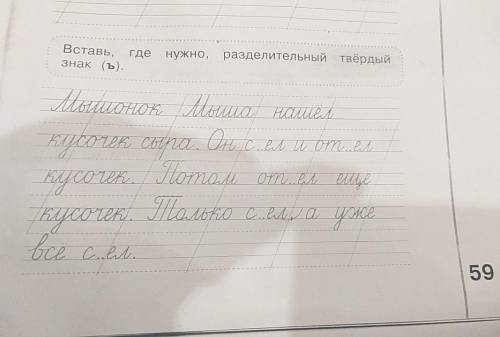 Вставь, где нужно, разделительный твёрдый
знак (ъ).
Мышонок Мыша нашёл
кусочек сыра. Он с..ел и от..ел
кусочек. Потом от..ел ещё
кусочек. Только с..ел, а уже
всё с..ел.
59